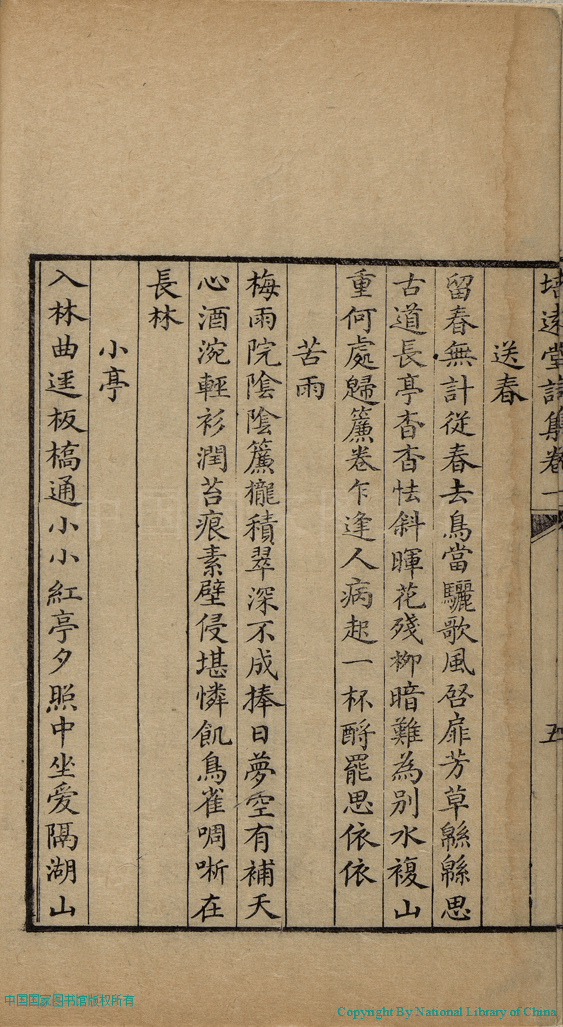 培遠堂詩集卷一
五
送春
留春無計從春去鳥當驪歌風启扉芳草緜緜思
古道長亭杳杳怯斜暉花殘柳暗難為別水複山
重何處歸簾卷乍逢人病起一杯酹罷思依依
苦雨
梅雨院隂隂簾櫳積翠深不成捧日夢空有補天
心酒涴輕衫潤苔痕素壁侵堪憐飢鳥雀啁哳在
長林
小亭
入林曲逕板橋通小小紅亭夕照中坐愛隔湖山
中国国家图书馆版权所有
Copyright By National Library of China